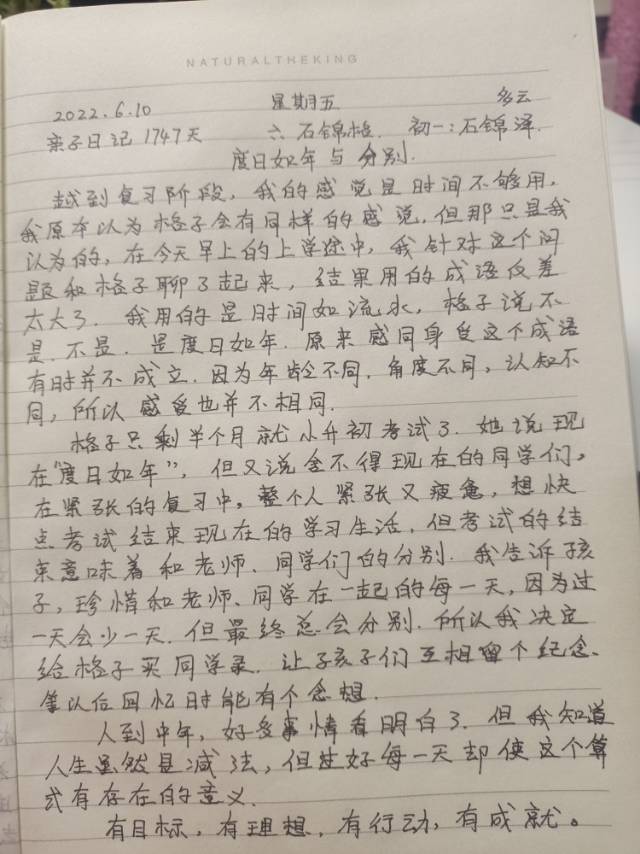 NATURALTHEKING
2022.6.10 星期五 多云
亲子日记 1747天 六:石锦格. 初一:石锦泽.
度日如年与分别.
越到复习阶段,我的感觉是时间不够用,
我原本以为格子会有同样的感觉,但那只是我
认为的,在今天早上的上学途中,我针对这个问
题和格子聊了起来,结果用的成语仅差
太大了.我用的是时间如流水,格子说不
是.不是.是度日如年.原来感同身受这个成语
有时并不成立.因为年龄不同.角度不同,认知不
同,所以感受也并不相同.
格子只剩半个月就小升初考试了.她说现
在“度日如年”,但又说舍不得现在的同学们,
在紧张的复习中,整个人紧张又疲惫,想快
点考试结束现在的学习生活,但考试的结
束意味着和老师、同学们的分别.我告诉孩
子,珍惜和老师、同学在一起的每一天,因为过
一天会少一天.但最终总会分别.所以我决定
给格子买同学录.让孩子们互相留个纪念、
等以后回忆时能有个念想.
人到中年,好多事情看明白了.但我知道
人生虽然是减法,但过好每一天却使这个算
式有存在的意义.
有目标,有理想,有行动,有成就。